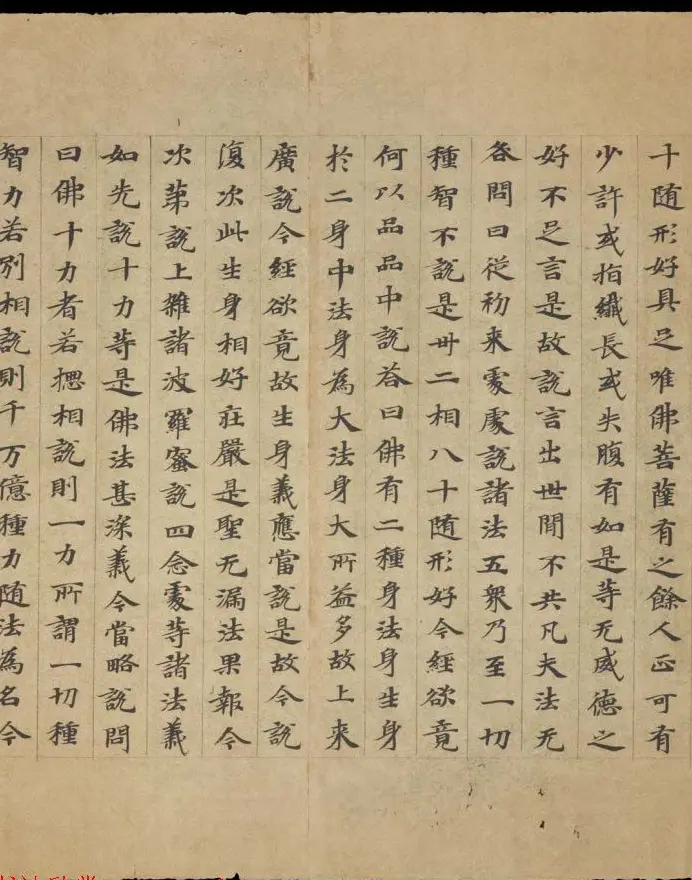 十随形好具足唯佛菩薩有之餘人正可有
少許或指纖長或失腹有如是等无威德之
好不足言是故說言出世間不共凡夫法无
咎問曰從初来處處說諸法五衆乃至一切
種智不說是卅二相八十随形好今經欲竟
何以品品中說荅曰佛有二種身法身生身
於二身中法身為大法身大所益多故上来
廣說今經欲竟故生身義應當說是故今說
復次此生身相好莊嚴是聖无漏法果報今
次第說上雜諸波羅蜜說四念處等諸法義
如先說十力等是佛法甚深義今當略說問
曰佛十力者若揔相說則一力所謂一切種
智力若別相說則千万億種力随法為名今